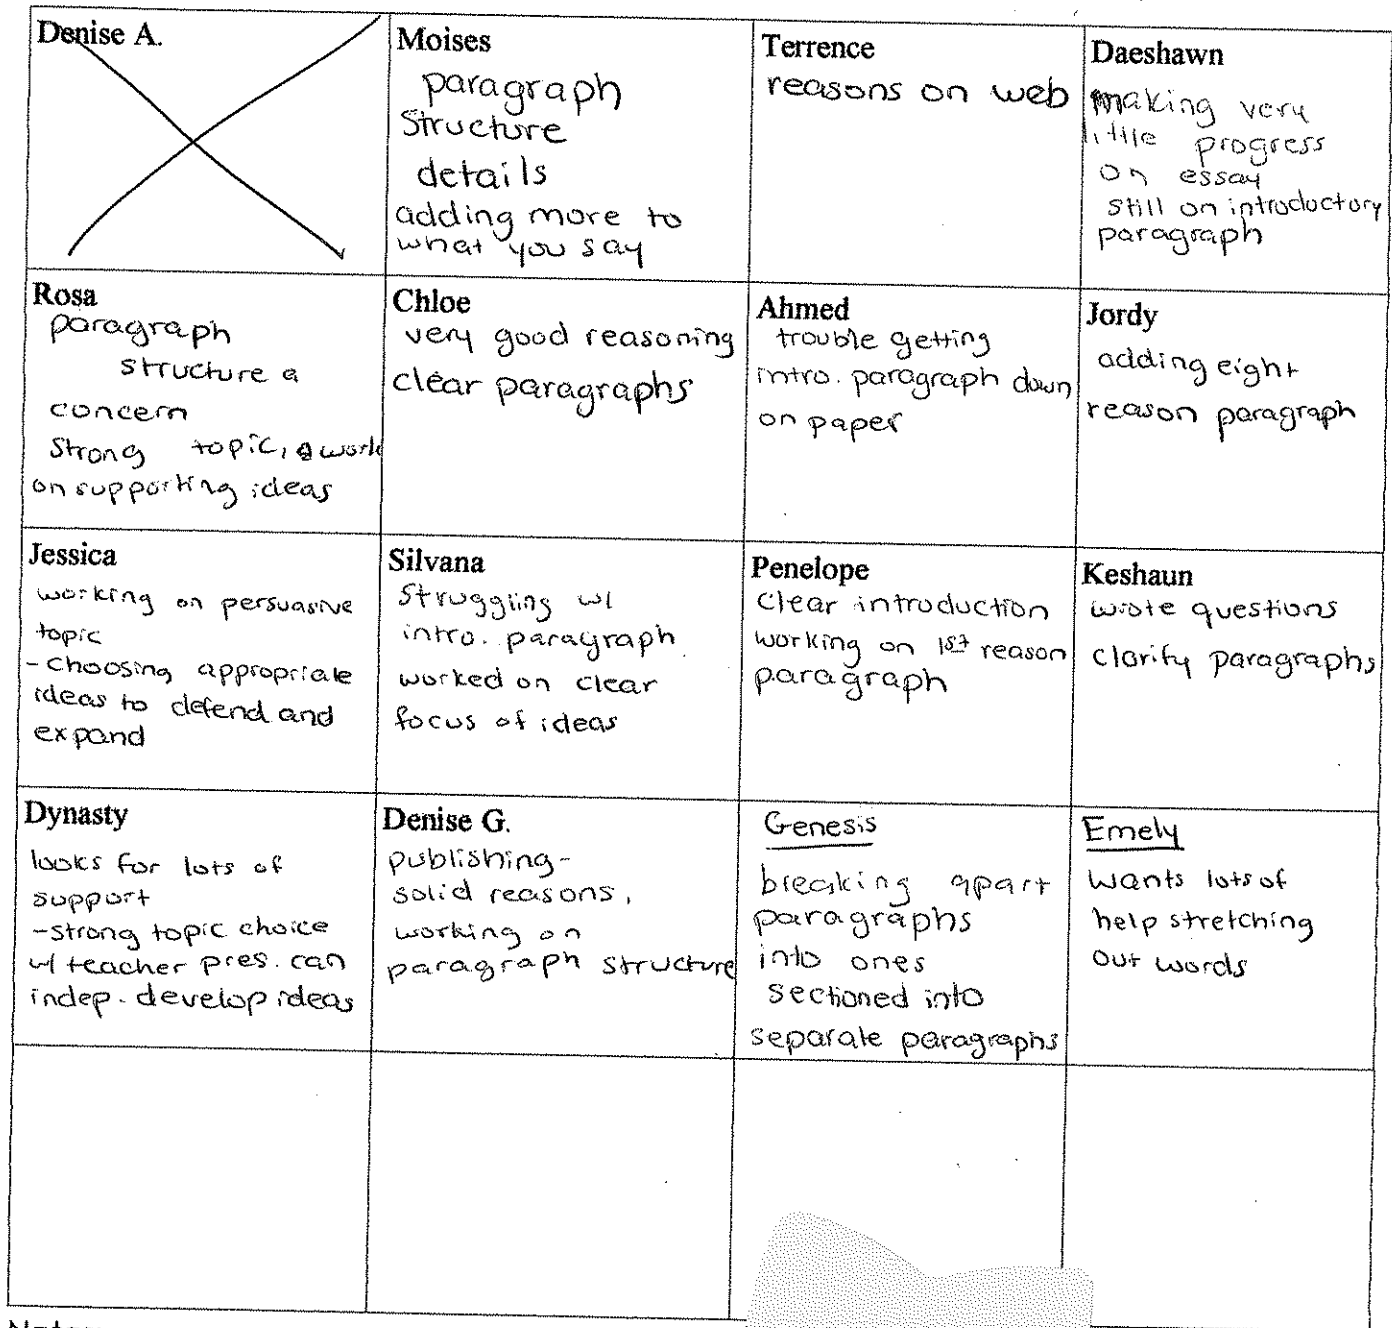 Denise A.
Moises
paragraph
structure
details
adding more to
what you say
Terrence
reasons on web
Daeshawn
making very
little progress
on essay
still on introductory
paragraph
Rosa
paragraph
structure a
concern
Strong topic, work
on supporting ideas
Chloe
very good reasoning
clear paragraphs
Ahmed
trouble getting
intro. paragraph down
on paper
Jordy
adding eight
reason paragraph
Jessica
working on persuasive
topic
- Choosing appropriate
ideas to defend and
expand
Silvana
Struggling w/
intro. paragraph
worked on clear
focus of ideas
Penelope
Clear introduction
working on 1st reason
paragraph
Keshaun
wrote questions
clarify paragraphs
Dynasty
looks for lots of
support
- strong topic choice
w/ teacher pres. can
indep. develop ideas
Denise G.
publishing -
solid reasons,
working on
paragraph structure
Genesis
breaking apart
paragraphs
into ones
sectioned into
separate paragraphs
Emely
wants lots of
help stretching
out words